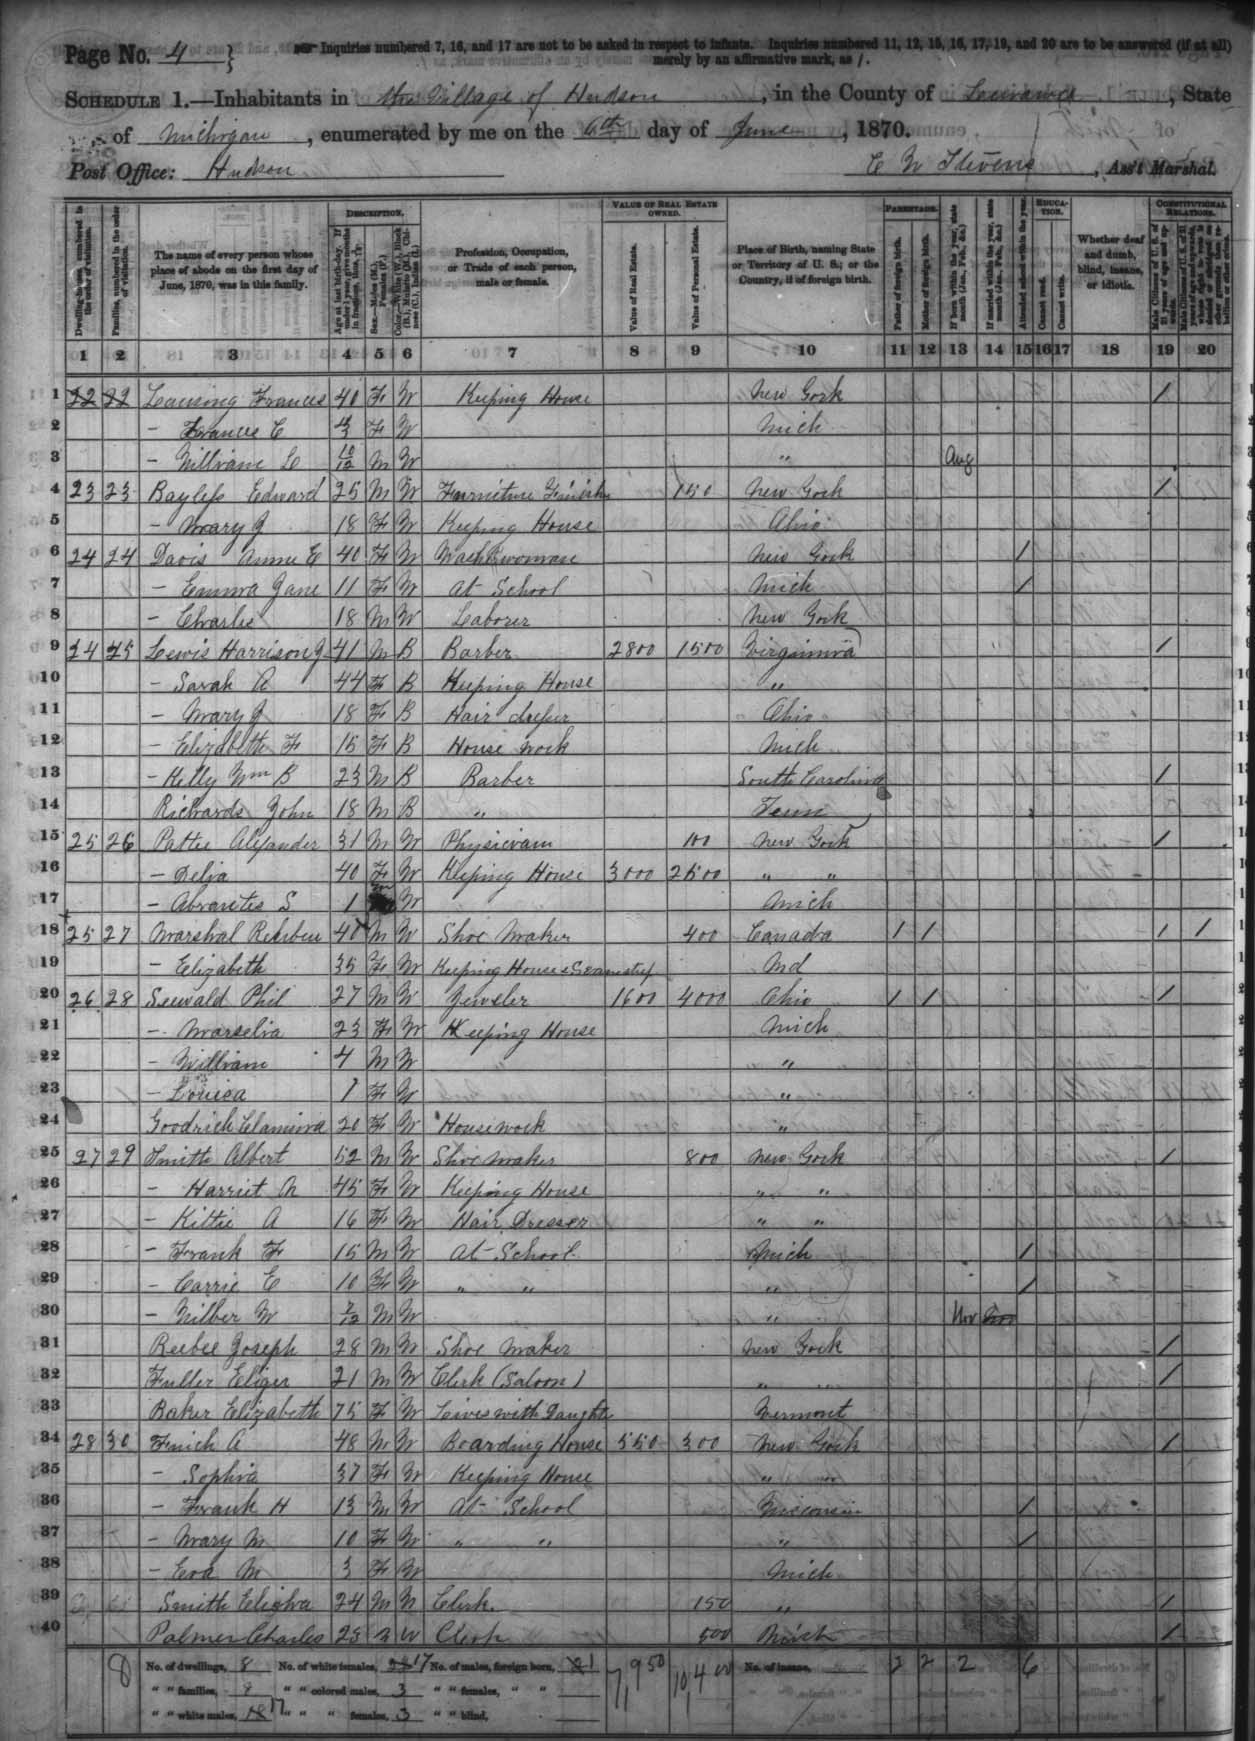 Page No. 4 } Inquiries numbered 7, 16, and 17 are not to be asked in respect to infants. Inquiries numbered 11, 12, 15, 16, 17, 19, and 20 are to be answered (if at all)
merely by an affirmative mark, as /.
SCHEDULE 1.—Inhabitants in Village of Hudson, in the County of Lenawee, State
of Michigan, enumerated by me on the 6th day of June, 1870.
Post Office: Hudson C W Stevens, Ass't Marshal.
DESCRIPTION. VALUE OF REAL ESTATE OWNED. PARENTAGE. EDUCATION. CONSTITUTIONAL RELATIONS.
Dwelling-houses, numbered in the order of visitation.
Families, numbered in the order of visitation.
The name of every person whose place of abode on the first day of June, 1870, was in this family.
Age at last birth-day. If under 1 year, give months in fractions, thus, 3/12.
Sex.—Males (M.), Females (F.)
Color.—White (W.), Black (B.), Mulatto (M.), Chinese (C.), Indian (I.)
Profession, Occupation, or Trade of each person, male or female.
Value of Real Estate.
Value of Personal Estate.
Place of Birth, naming State or Territory of U. S.; or the Country, if of foreign birth.
Father of foreign birth.
Mother of foreign birth.
If born within the year, state month (Jan., Feb., &c.)
If married within the year, state month (Jan., Feb., &c.)
Attended school within the year.
Cannot read.
Cannot write.
Whether deaf and dumb, blind, insane, or idiotic.
Male Citizens of U. S. of 21 years of age and upwards.
1 2 3 4 5 6 7 8 9 10 11 12 13 14 15 16 17 18 19 20
1 22 22 Lansing Frances 40 F W Keeping House New York /
2 – Frances C F W Mich
3 – William L 10/12 M W " Aug
4 23 23 Bayless Edward 25 M W Furniture Finisher 150 New York /
5 – Mary J 18 F W Keeping House Ohio
6 24 24 Davis Annie E 40 F W Washwoman New York /
7 – Emma Jane 11 F W At School Mich /
8 – Charles 18 M W Laborer New York
9 24 25 Lewis Harrison J 41 M B Barber 2800 1500 Virginia /
10 – Sarah A 44 F B Keeping House "
11 – Mary J 18 F B Hair dresser Ohio
12 – Elizabeth F 15 F B House work Mich
13 – Kelly Wm B 23 M B Barber South Carolina /
14 Richards John 18 M B " Tenn
15 25 26 Pattee Alexander 31 M W Physician 100 New York /
16 – Delia 40 F W Keeping House 3000 2500 " "
17 – Abrantes S 1 m W Mich
18 25 27 Marshal Reuben 40 M W Shoe Maker 400 Canada / / / /
19 – Elizabeth 35 F W Keeping House & Seamstress Md
20 26 28 Seewald Phil 27 M W Jeweler 1600 4000 Ohio / / /
21 – Marselia 23 F W Keeping House Mich
22 – William 4 M W "
23 – Louisa 1 F W "
24 Goodrich 20 F W Housework "
25 27 29 Smith Albert 52 M W Shoe Maker 800 New York /
26 – Harriet M 45 F W Keeping House " "
27 – Kittie A 16 F W Hair Dresser " "
28 – Frank F 15 M W At School Mich /
29 – Carrie E 10 F W " " " /
30 – Wilber W 7/12 M W " Nov Nov
31 Beebee Joseph 28 M W Shoe Maker New York /
32 Fuller Eliger 21 M W Clerk (Saloon) " " /
33 Baker Elizabeth 75 F W Lives with Daughter Vermont
34 28 30 Finich A 48 M W Boarding House 550 300 New York /
35 – Sophia 37 F W Keeping House " "
36 – Frank H 13 M W At School Wisconsin /
37 – Mary M 10 F W " " " /
38 – Eva M 3 F W Mich
39 Smith Elisha 24 M W Clerk 150 " /
40 Palmer Charles 25 M W Clerk 500 Mich /
8 No. of dwellings, 8 No. of white females, 17 No. of males, foreign born, 1 7,950 10,400 No. of insane, 2 2 2 6
" " families, 8 " " colored males, 3 " " females, " "
" " white males, 18 17 " " " females, 3 " " blind,